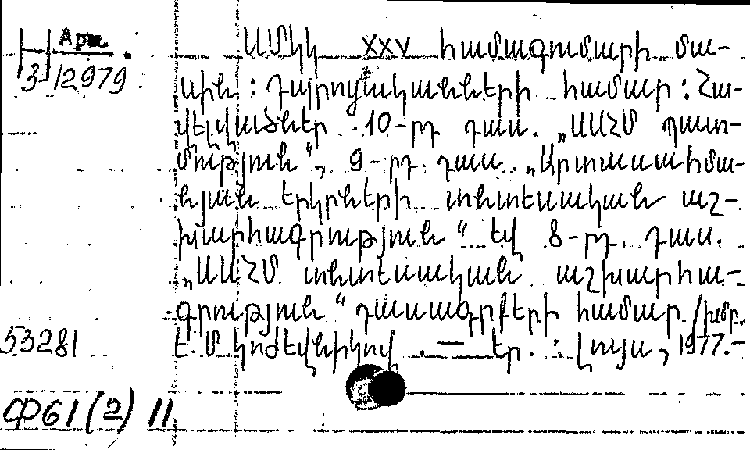 Արտ.
3/12979
ԱՄԿԿ XXV համագումարի մա-
սին: Դպրոցականների համար: Հա-
վելվածներ 10-րդ դաս. „ՍՍՀՄ պատ-
մություն“, 9-րդ դաս. „Արտասահմա-
նյան երկրների տնտեսական աշ-
խարհագրություն“ եվ 8-րդ. դաս.
„ՍՍՀՄ տնտեսական աշխարհա-
գրություն“ դասագրքերի համար /խմբ.
53281 Է. Մ. Կոժեվնիկով. — Եր.: Լույս, 1977.-
Ф61(2) 11